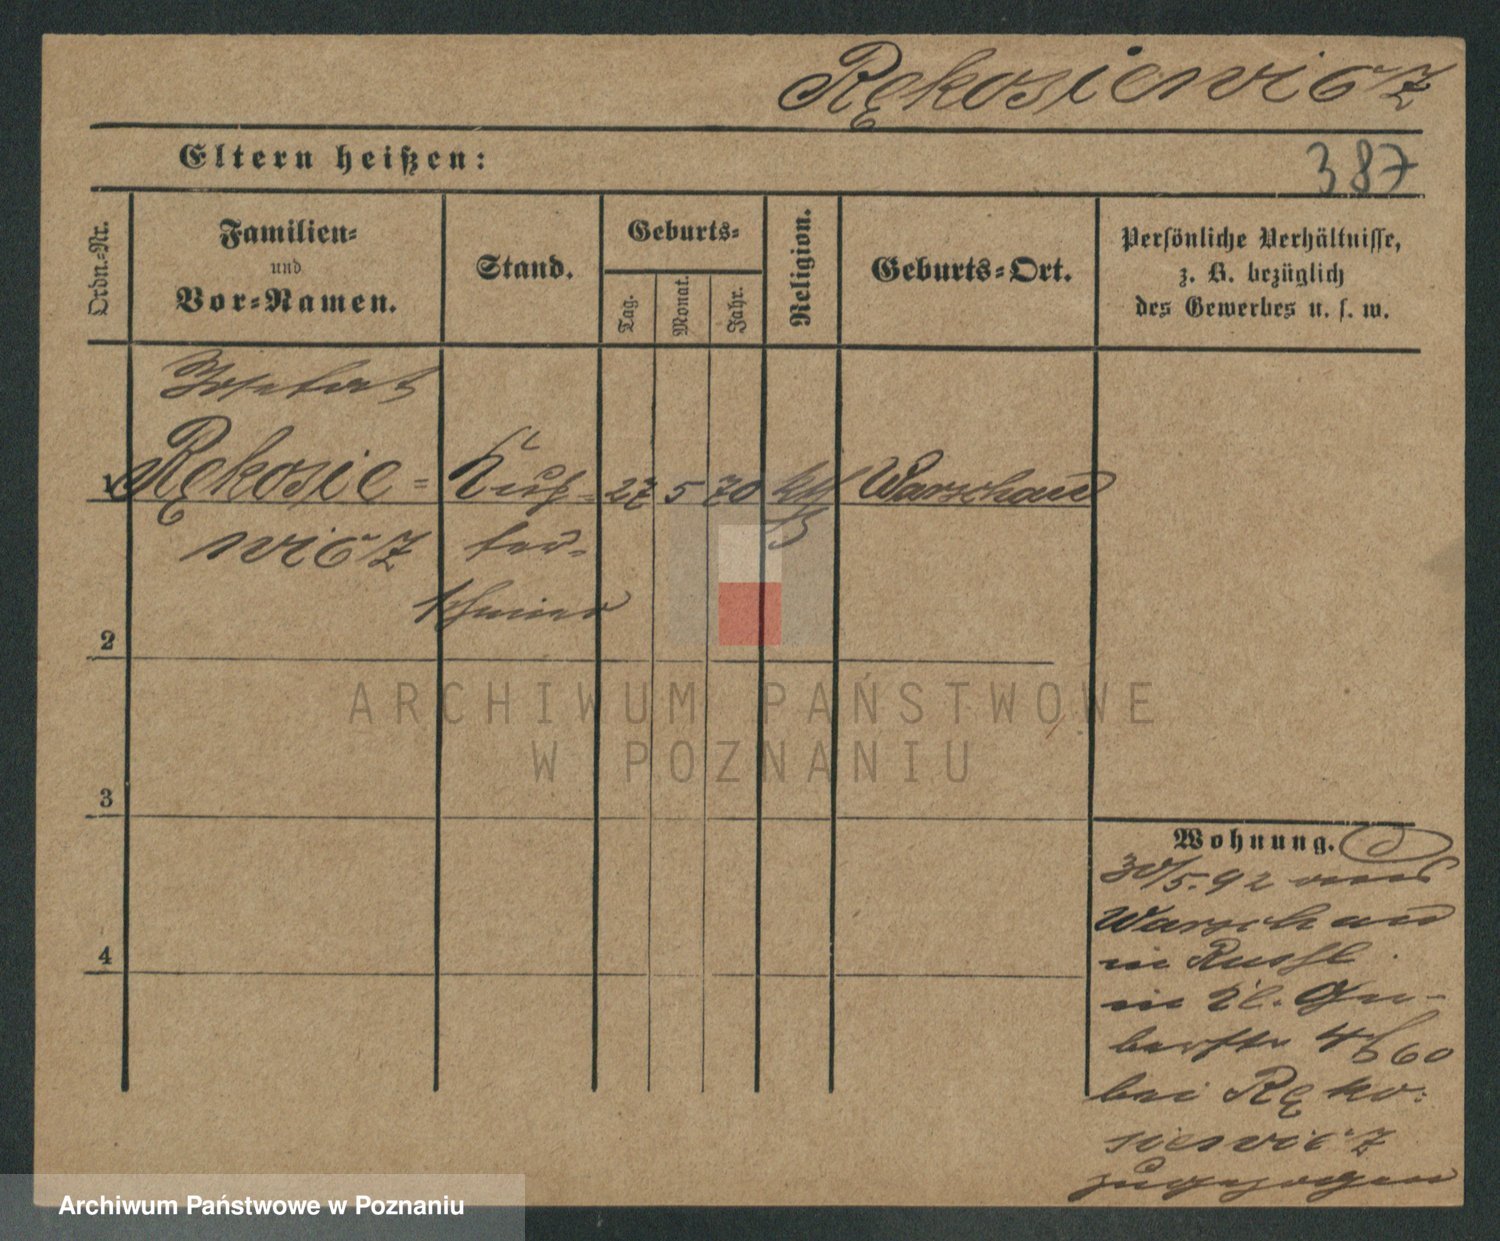 Rękosiewicz
Eltern heißen:
387
Ordn.-Nr.
Familien-
und
Vor-Namen.
Stand.
Geburts-
Tag.
Monat.
Jahr.
Religion.
Geburts-Ort.
Persönliche Verhältnisse,
z. B. bezüglich
des Gewerbes u. s. w.
1 Rękosie- 27 5 70 kth Warschau
wicz
2
3
4
Wohnung.
30/5. 92 von
Warschau
in Rußl.
in
4/5 60
bei Ręko-
siewicz
zugezogen
ARCHIWUM PAŃSTWOWE
W POZNANIU
Archiwum Państwowe w Poznaniu